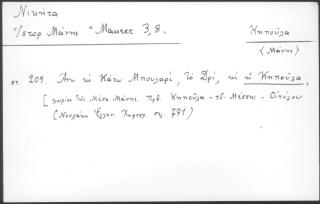 Νικήτα
"Ιστορ. Μάνης" Maurer 3, 8.
Κηπούλα
(Μάνης)
στ. 209. Άνω κι Κάτω Μπουλαρί, το Δρί, κι η Κηπούλα,
[χωρίον της Μέσα Μάνης. Πρβ. Κηπούλα - τδ. Μέσσης - Οιτύλου
(Νουχάκη Ελλην. Χωρογρ. σελ. 771)